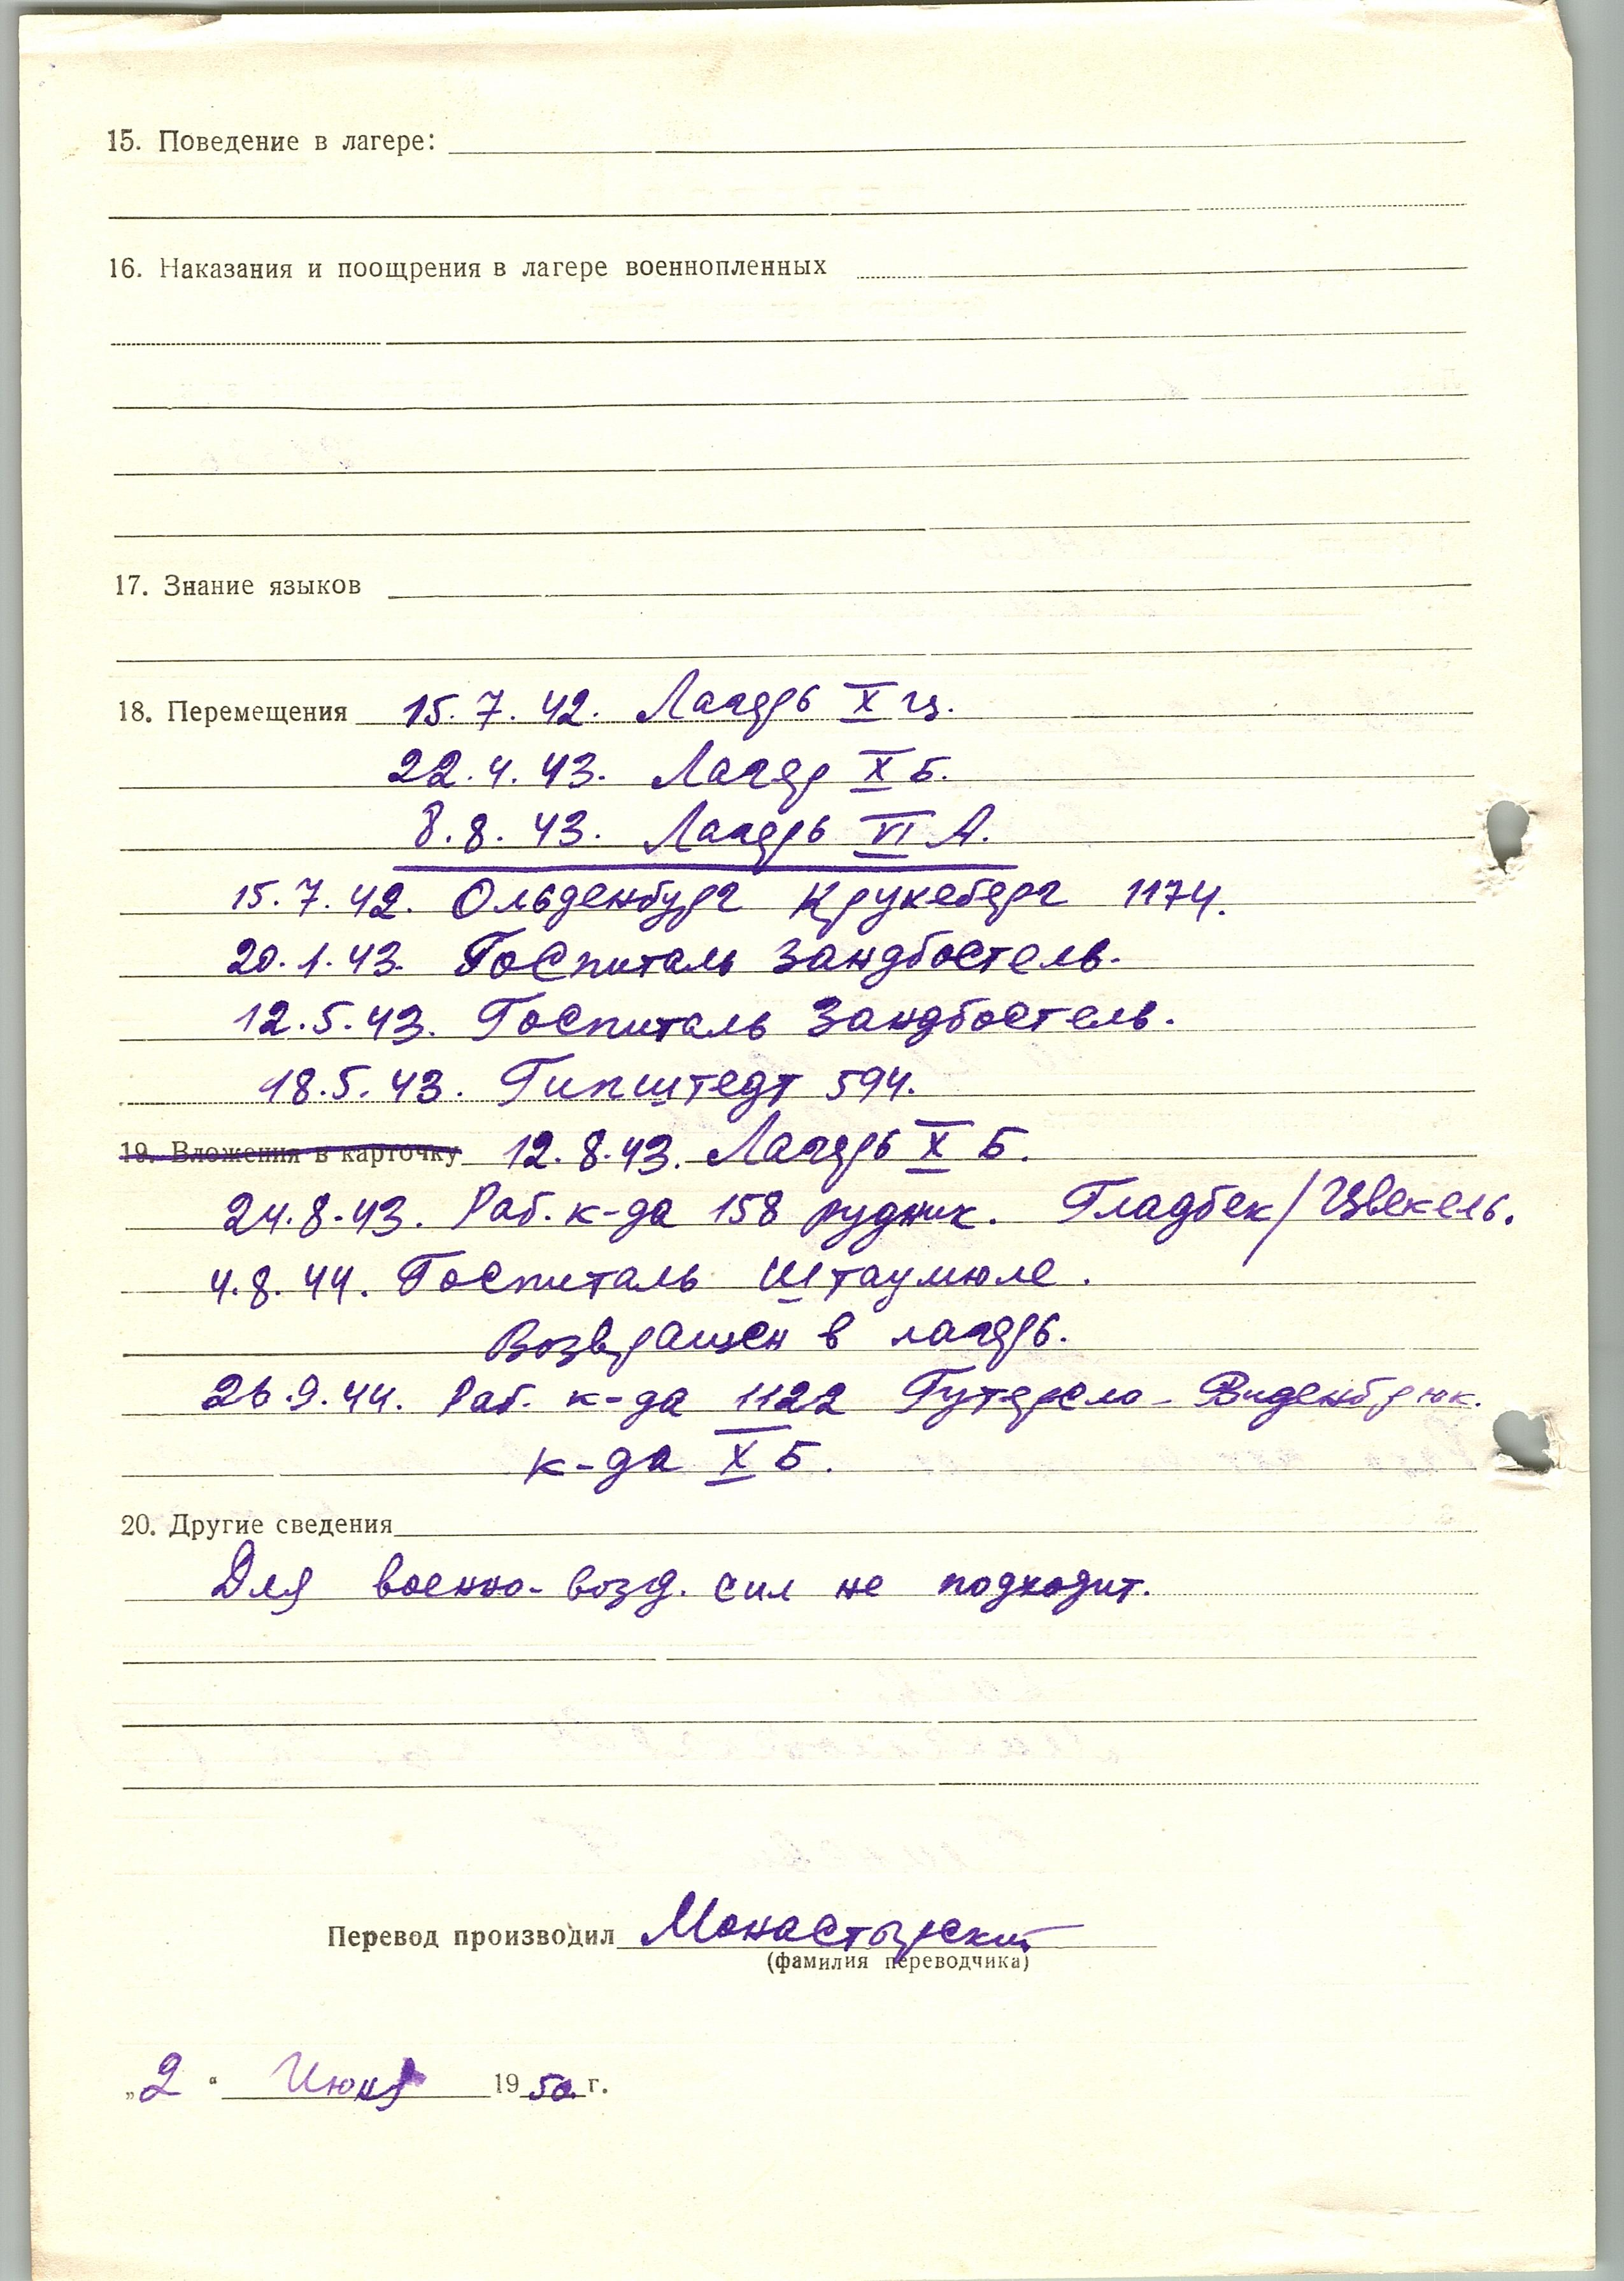 15. Поведение в лагере:
16. Наказания и поощрения в лагере военнопленных
17. Знание языков
18. Перемещения 15.7.42. Лагерь X ц.
22.4.43. Лагер X Б.
8.8.43. Лагерь VI А.
15.7.42. Ольденбург Крукеберг 1174.
20.1.43. Госпиталь Зандбостель.
12.5.43. Госпиталь Зандбостель.
18.5.43. Гипштедт 594.
19. Вложения в карточку 12.8.43. Лагерь X Б.
24.8.43. Раб. к-да 158 рудник. Гладбек/Цвекель.
4.8.44. Госпиталь Штаумюле.
Возвращен в лагерь.
26.9.44. Раб. к-да 1122 Гутерсло - Виденбрюк.
к-да X Б.
20. Другие сведения
Для военно-возд. сил не подходит.
Перевод производил Монастырский
(фамилия переводчика)
„2“ Июня 1950 г.